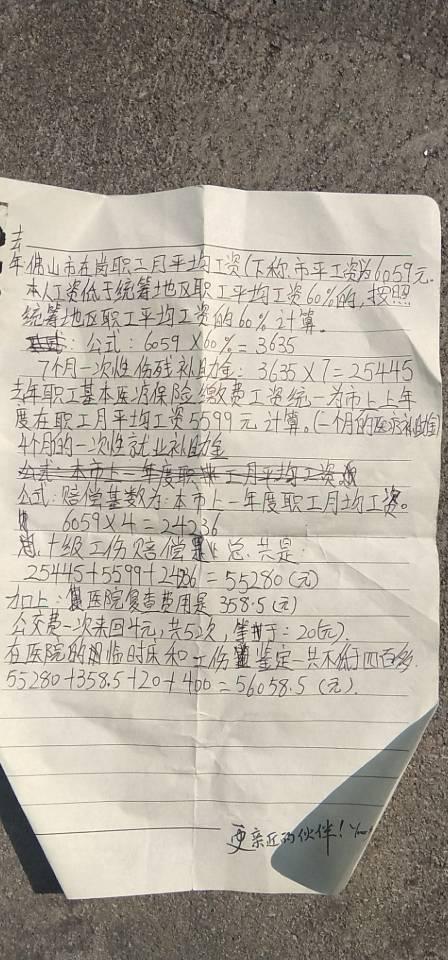 去
年佛山市在岗职工月平均工资(下称市平工资)为6059元.
本人工资低于统筹地区职工平均工资60%的,按照
统筹地区职工平均工资的60%计算。
公式:6059×60%=3635
7个月一次性伤残补助金:3635×7=25445
去年职工基本医疗保险缴费工资统一为市上上年
度在职工月平均工资5599元计算。(一个月的医疗补助金)
4个月的一次性就业补助金
公式:本市上一年度职工月平均工资
公式:赔偿基数为:本市上一年度职工月均工资。
6059×4=24236
总十级工伤赔偿总共是:
25445+5599+24236=55280(元)
加上:医院复查费用是358.5(元)
公交费一次来回4元,共5次,等于=20(元).
在医院的临时床和工伤鉴定一共不低于四百多.
55280+358.5+20+400=56058.5(元).
更亲近的伙伴!